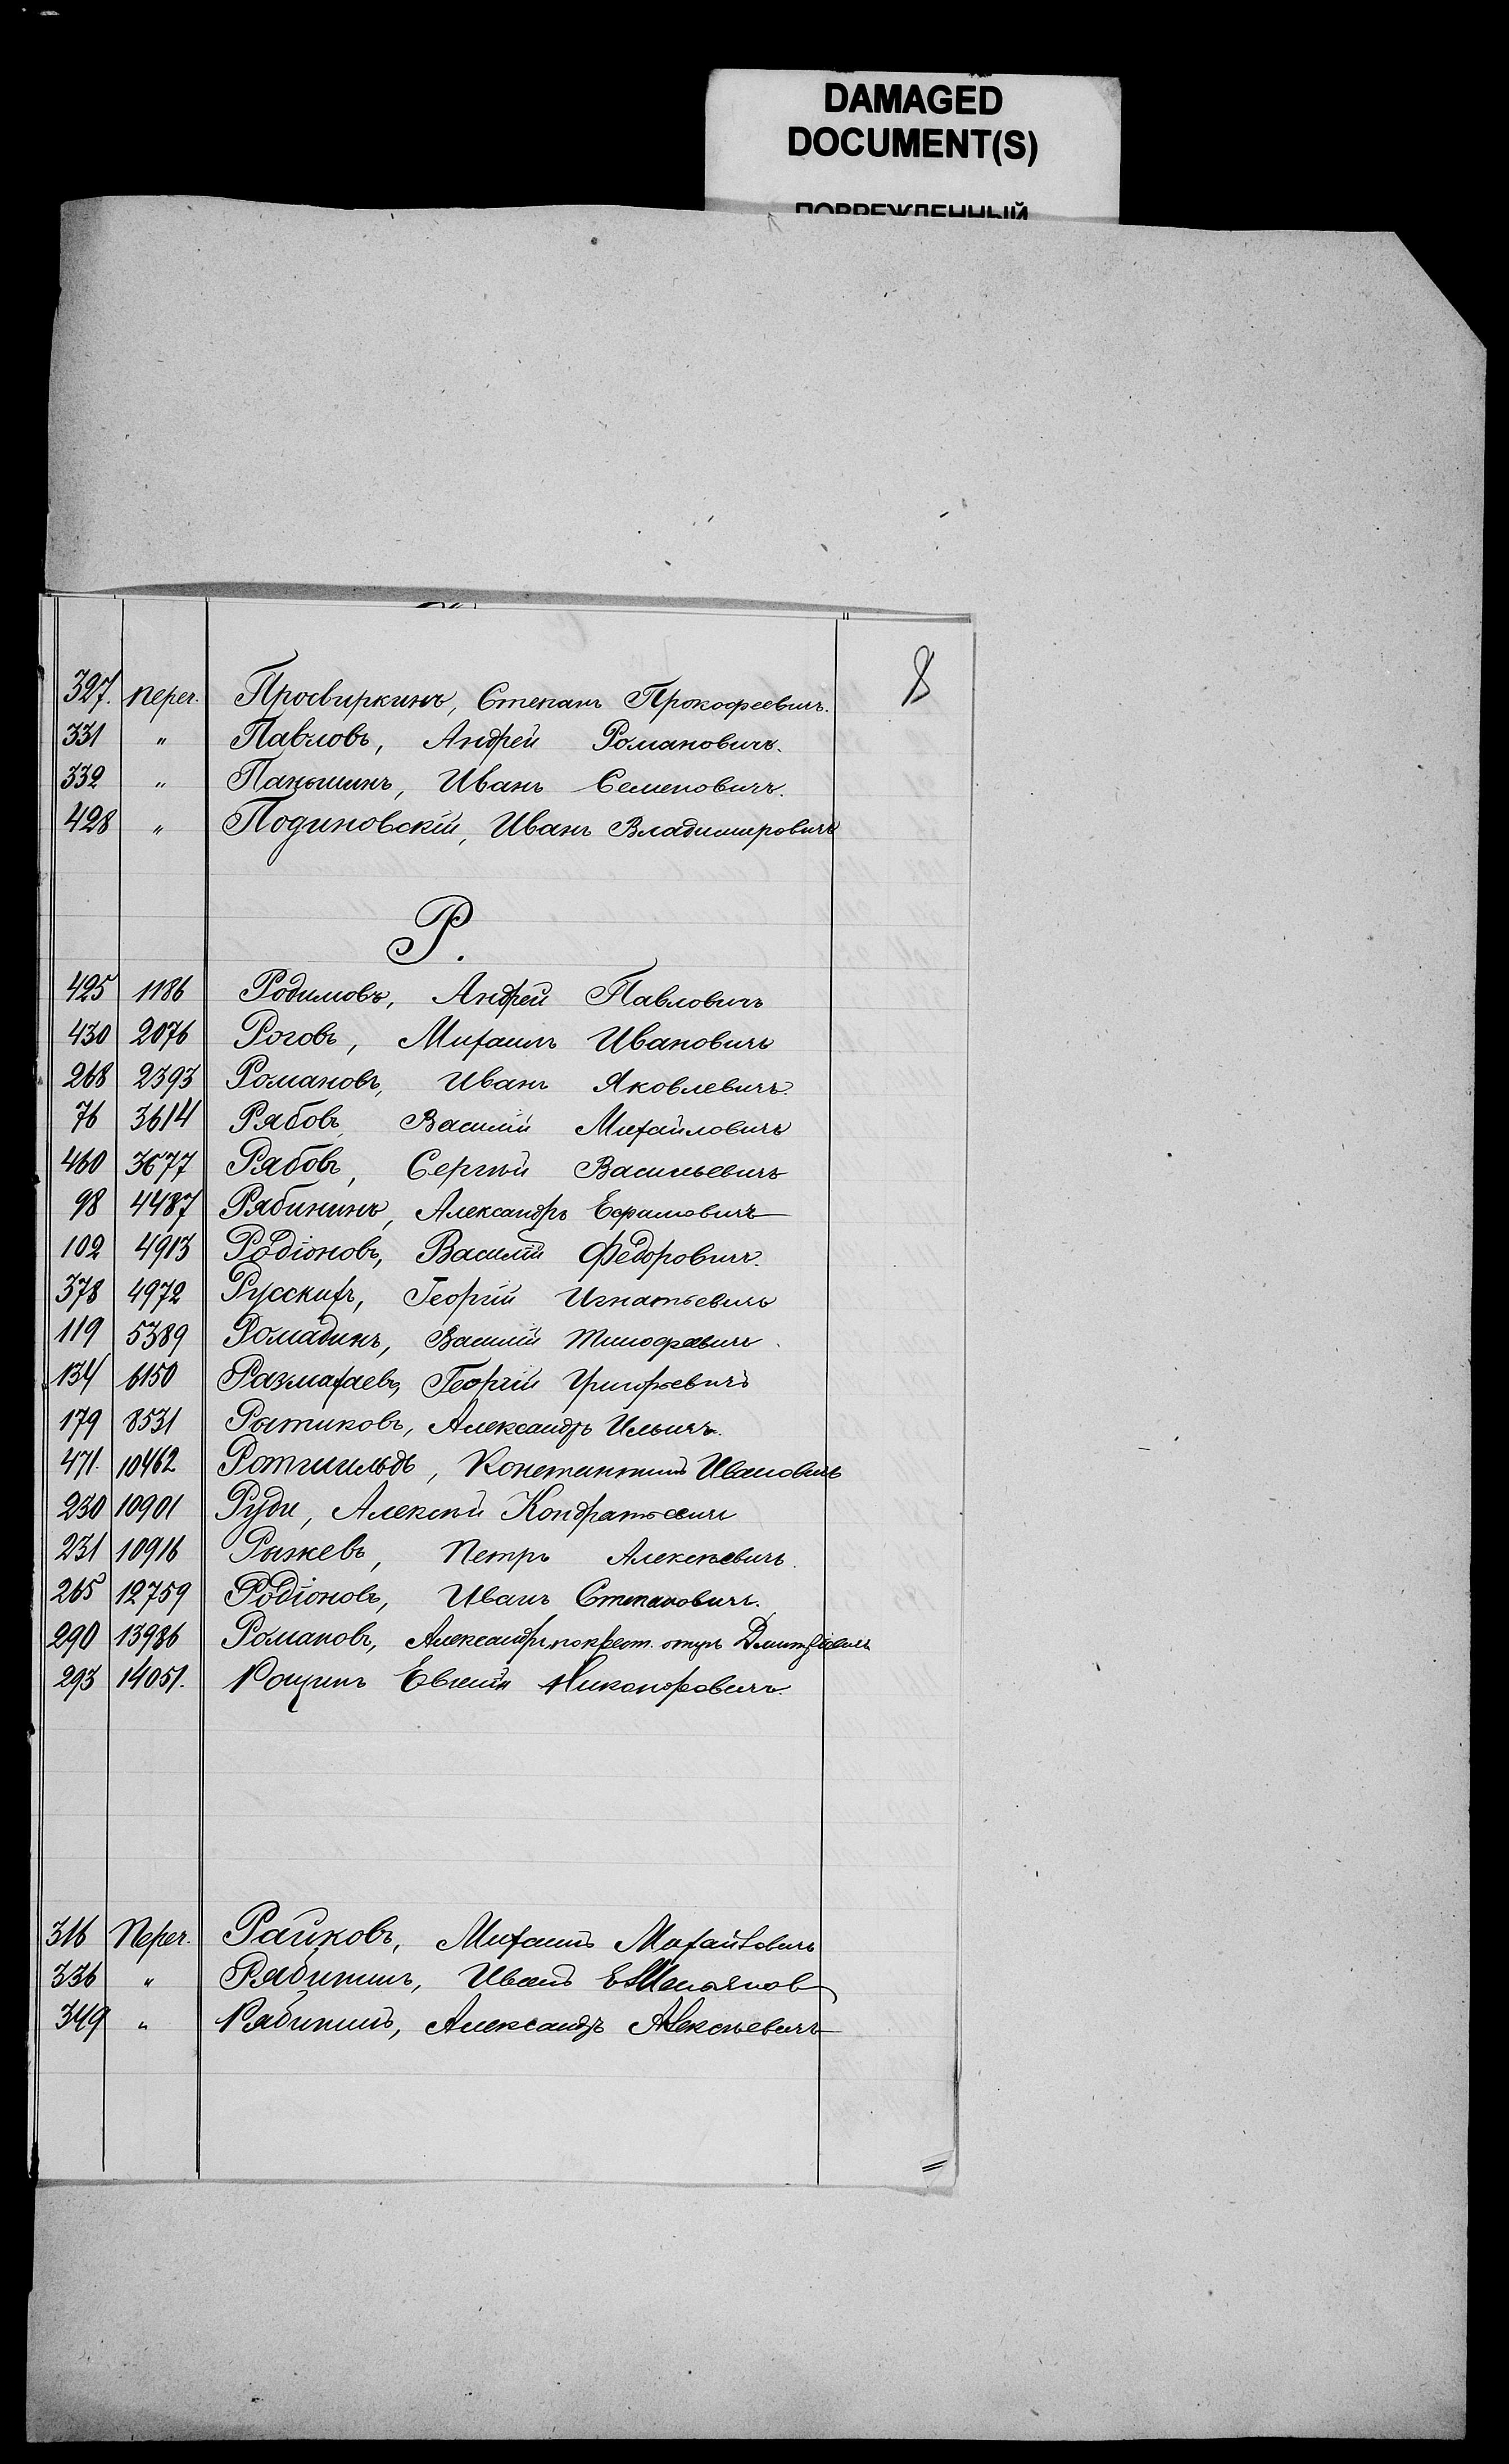 DAMAGED
DOCUMENT(S)
ПОВРЕЖДЕННЫЙ
8
327. переч. Просвиркинъ, Степанъ Прокофеевичъ.
331 " Павловъ, Андрей Романовичъ.
332 " Паньшинъ, Иванъ Семеновичъ.
428 " Подиновскій, Иванъ Владимировичъ
Р.
425 1186 Родимовъ, Андрей Павловичъ
430 2076 Роговъ, Михаилъ Ивановичъ
268 2393 Романовъ, Иванъ Яковлевичъ.
76 3614 Рябовъ, Василій Михайловичъ
460 3677 Рябовъ, Сергѣй Васильевичъ
98 4487 Рябининъ, Александръ Ефимовичъ
102 4913 Родіоновъ, Василій Федоровичъ.
378 4972 Русскихъ, Георгій Игнатьевичъ
119 5389 Ромадинъ, Василій Тимофеевичъ.
134 6150 Размахаевъ, Георгій Григорьевичъ
179 8531 Рытиковъ, Александръ Ильичъ.
471. 10462 Ротшильдъ, Константинъ Ивановичъ
230 10901 Руди, Алексѣй Кондратьевичъ
231 10916 Рыжевъ, Петръ Алексѣевичъ.
265 12759 Родіоновъ, Иванъ Степановичъ.
290 13986 Романовъ, Александръ, по крест. отцу Дмитріевичъ
293 14051. Рощинъ Евгеній Никоноровичъ.
316 Переч. Райковъ, Михаилъ Михайловичъ
336 " Рябининъ, Иванъ
349 " Рябининъ, Александръ Алексѣевичъ